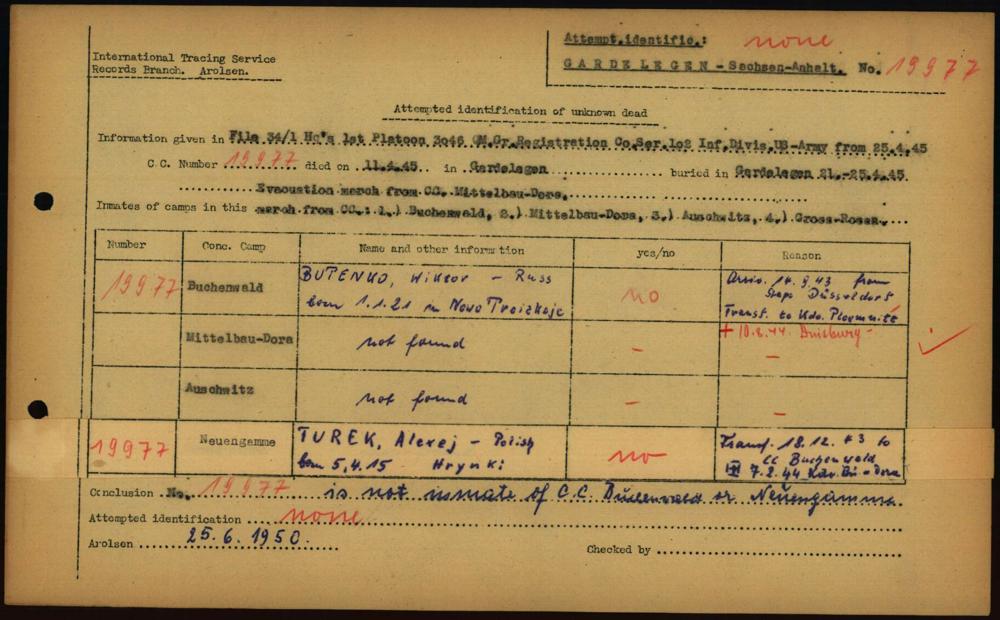 International Tracing Service
Records Branch. Arolsen.
Attempt.identific.: none
GARDELEGEN - Sachsen-Anhalt. No. 19977
Attempted identification of unknown dead
Information given in File 34/1 Hq's 1st Platoon 3046 QM.Gr.Registration Co.Ser.102 Inf.Divis.US-Army from 25.4.45
C.C. Number 19977 died on 11.4.45 in Gardelegen buried in Gardelegen 21.-25.4.45
Evacuation march from CC. Mittelbau-Dora.
Inmates of camps in this march from CC.: 1.) Buchenwald, 2.) Mittelbau-Dora, 3.) Auschwitz, 4.) Gross-Rosen
Number Conc. Camp Name and other information yes/no Reason
19977 Buchenwald BUTENKO, Wiktor - Russ
born 1.1.21 in Novo Troizkoje
no
Arriv. 14.9.43 from
Stapo Düsseldorf
Transf. to Kdo.
Mittelbau-Dora not found - + 10.8.44. Duisburg -
-
Auschwitz not found - -
19977 Neuengamme TUREK, Alexej - Polish
born 5.4.15 Hrynki
no
Transf. 18.12.43 to
CC Buchenwald
7.2.44 Kdo. Bu - Dora
Conclusion No. 19977 is not inmate of C.C. Buchenwald or Neuengamme
Attempted identification none
Arolsen 25.6.1950.
Checked by